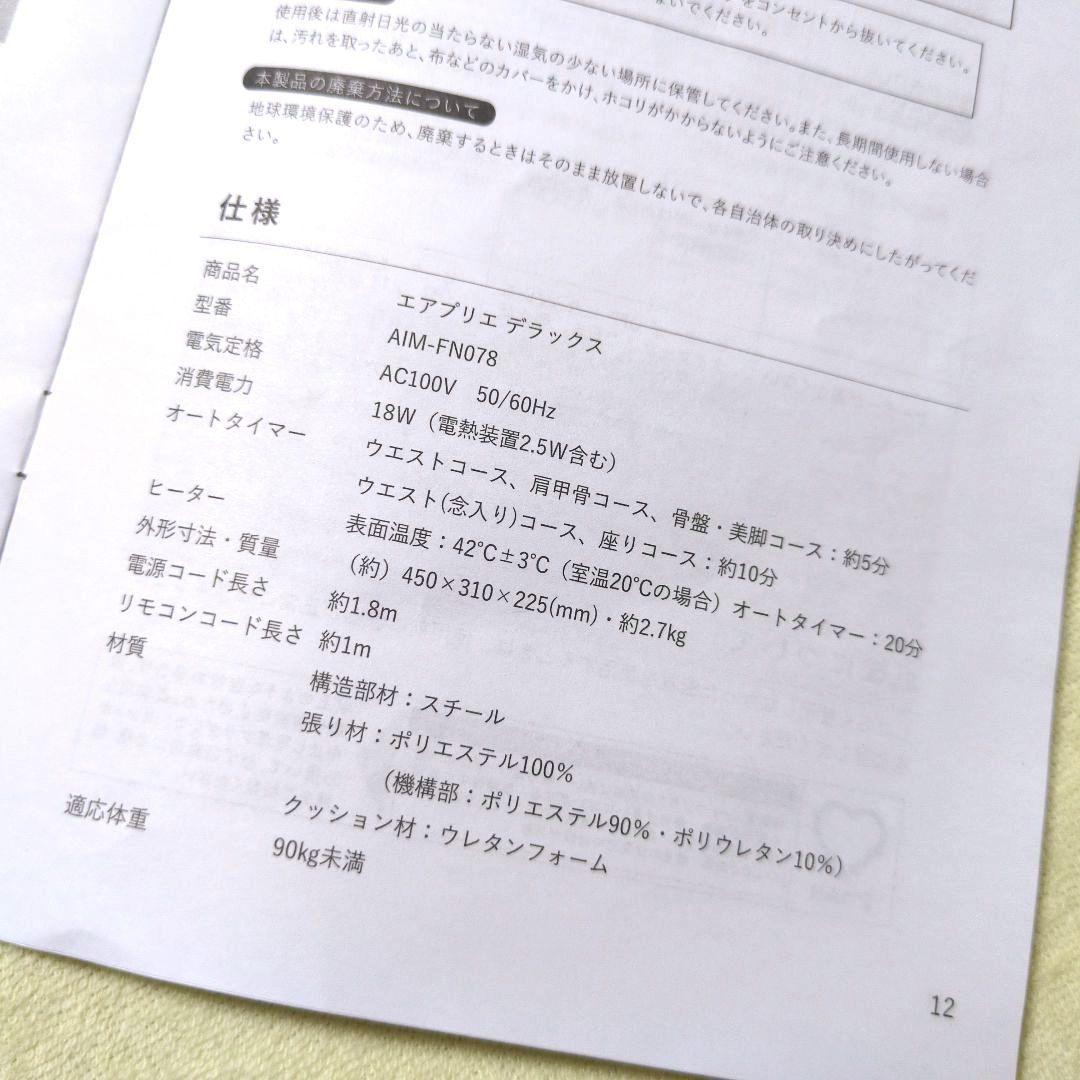 をコンセントから抜いてください。
ないでください。
使用後は直射日光の当たらない湿気の少ない場所に保管してください。また、長期間使用しない場合
は、汚れを取ったあと、布などのカバーをかけ、ホコリがかからないようにご注意ください。
本製品の廃棄方法について
地球環境保護のため、廃棄するときはそのまま放置しないで、各自治体の取り決めにしたがってくだ
さい。
仕様
商品名 エアプリエ デラックス
型番 AIM-FN078
電気定格 AC100V 50/60Hz
消費電力 18W（電熱装置2.5W含む）
オートタイマー ウエストコース、肩甲骨コース、骨盤・美脚コース：約5分
ウエスト(念入り)コース、座りコース：約10分
ヒーター 表面温度：42℃±3℃（室温20℃の場合）オートタイマー：20分
外形寸法・質量 （約）450×310×225(mm)・約2.7kg
電源コード長さ 約1.8m
リモコンコード長さ 約1m
材質 構造部材：スチール
張り材：ポリエステル100%
（機構部：ポリエステル90%・ポリウレタン10%）
クッション材：ウレタンフォーム
適応体重 90kg未満
12